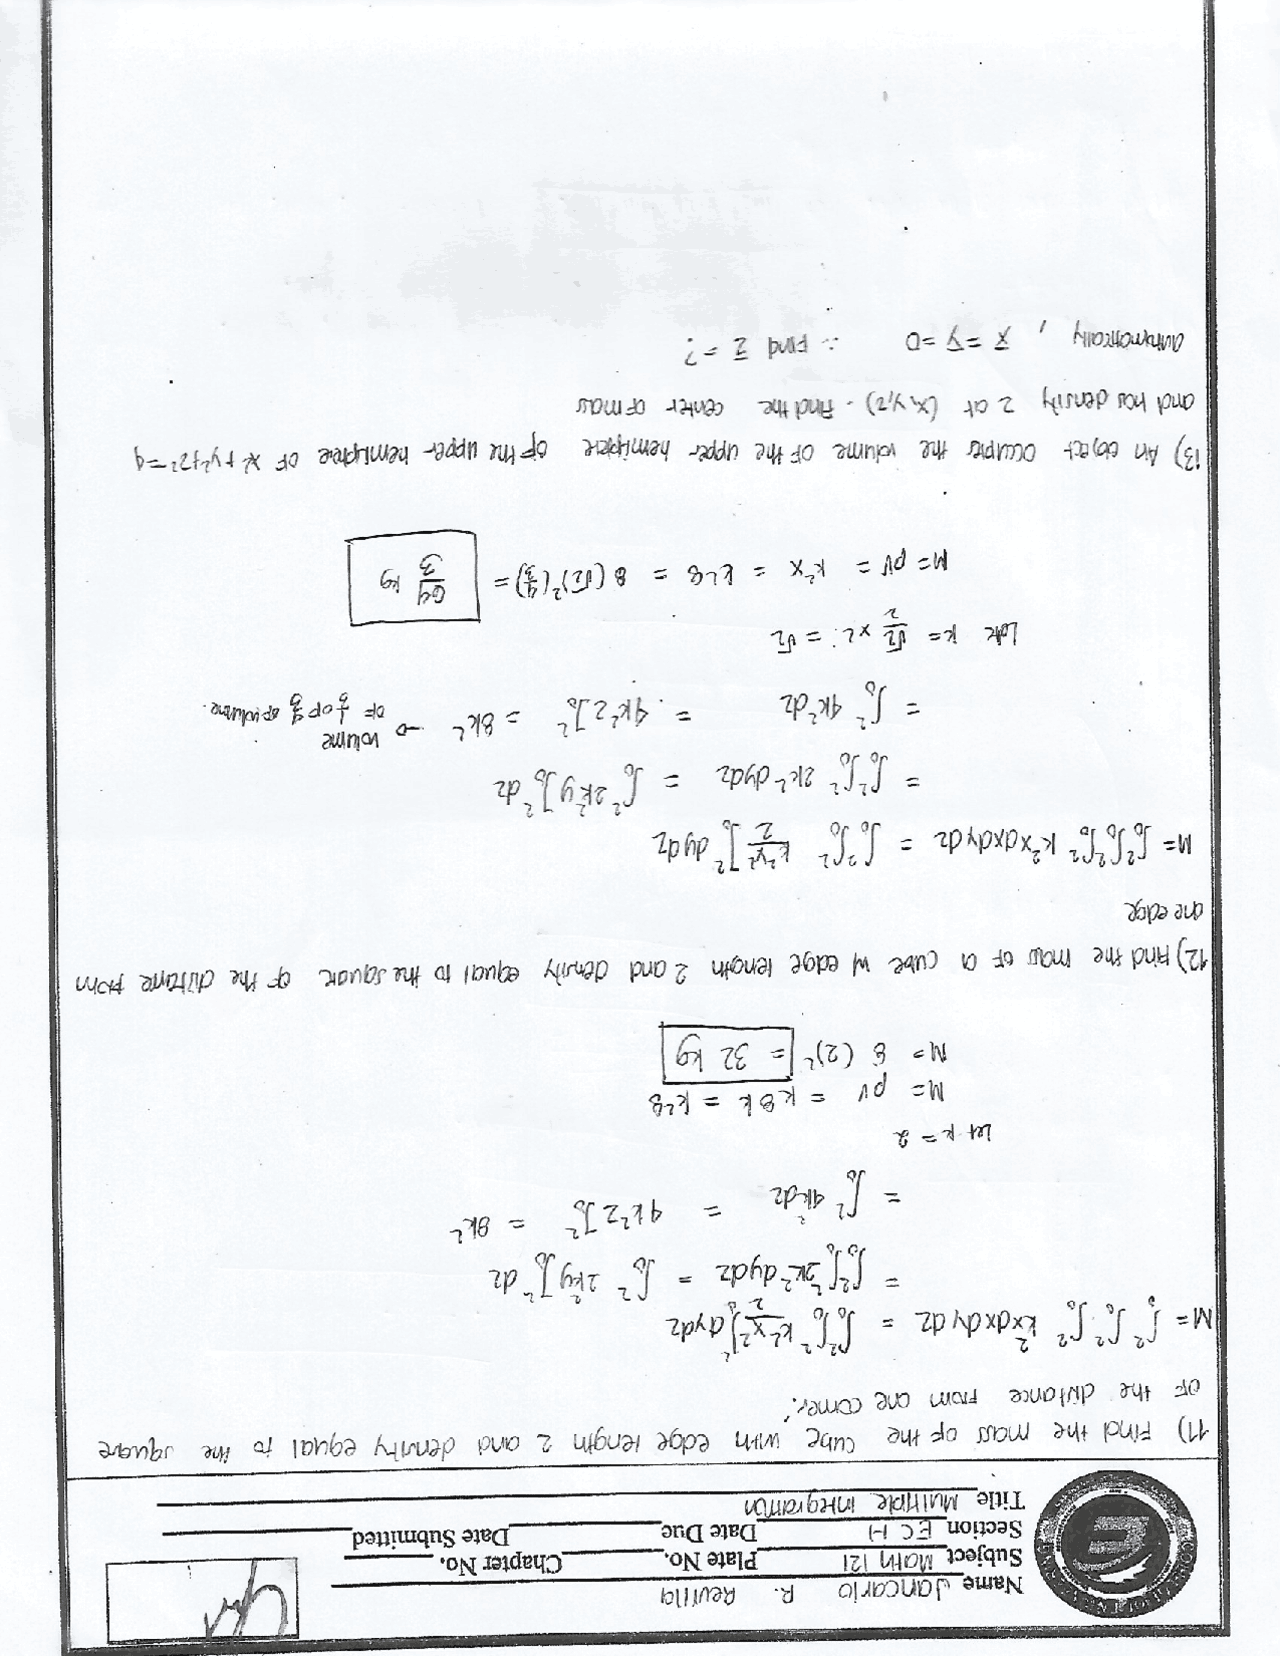 Name Jancarlo R. Revilla
Subject Math 121 Plate No. Chapter No.
Section ECH Date Due Date Submitted
Title Multiple integration
11) Find the mass of the cube with edge length 2 and density equal to the square
of the distance from one corner.
M = ∫₀² ∫₀² ∫₀² k²x dxdydz = ∫₀² ∫₀² k²x²/2 ]₀² dydz
= ∫₀² ∫₀² 2k² dydz = ∫₀² 2k²y ]₀² dz
= ∫₀² 4k² dz = 4k²z ]₀² = 8k²
Let k = 2
M = ρV = k8k = k²8
M = 8 (2)² = 32 kg
12) Find the mass of a cube w/ edge length 2 and density equal to the square of the distance from
one edge
M = ∫₀² ∫₀² ∫₀² k²x dxdydz = ∫₀² ∫₀² k²x²/2 ]₀² dydz
= ∫₀² ∫₀² 2k² dydz = ∫₀² 2k²y ]₀² dz
= ∫₀² 4k² dz = 4k²z ]₀² = 8k² → volume
k = √2/2 x 2 = √2
M = ρV = k²x = k²8 = 8 (√2)² (4/3) = 64/3 kg
13) An object occupies the volume of the upper hemisphere of the upper hemisphere of x²+y²+z²=4
and has density z at (x,y,z). Find the center of mass
automatically, x̅ = y̅ = 0 ∴ Find z̅ = ?